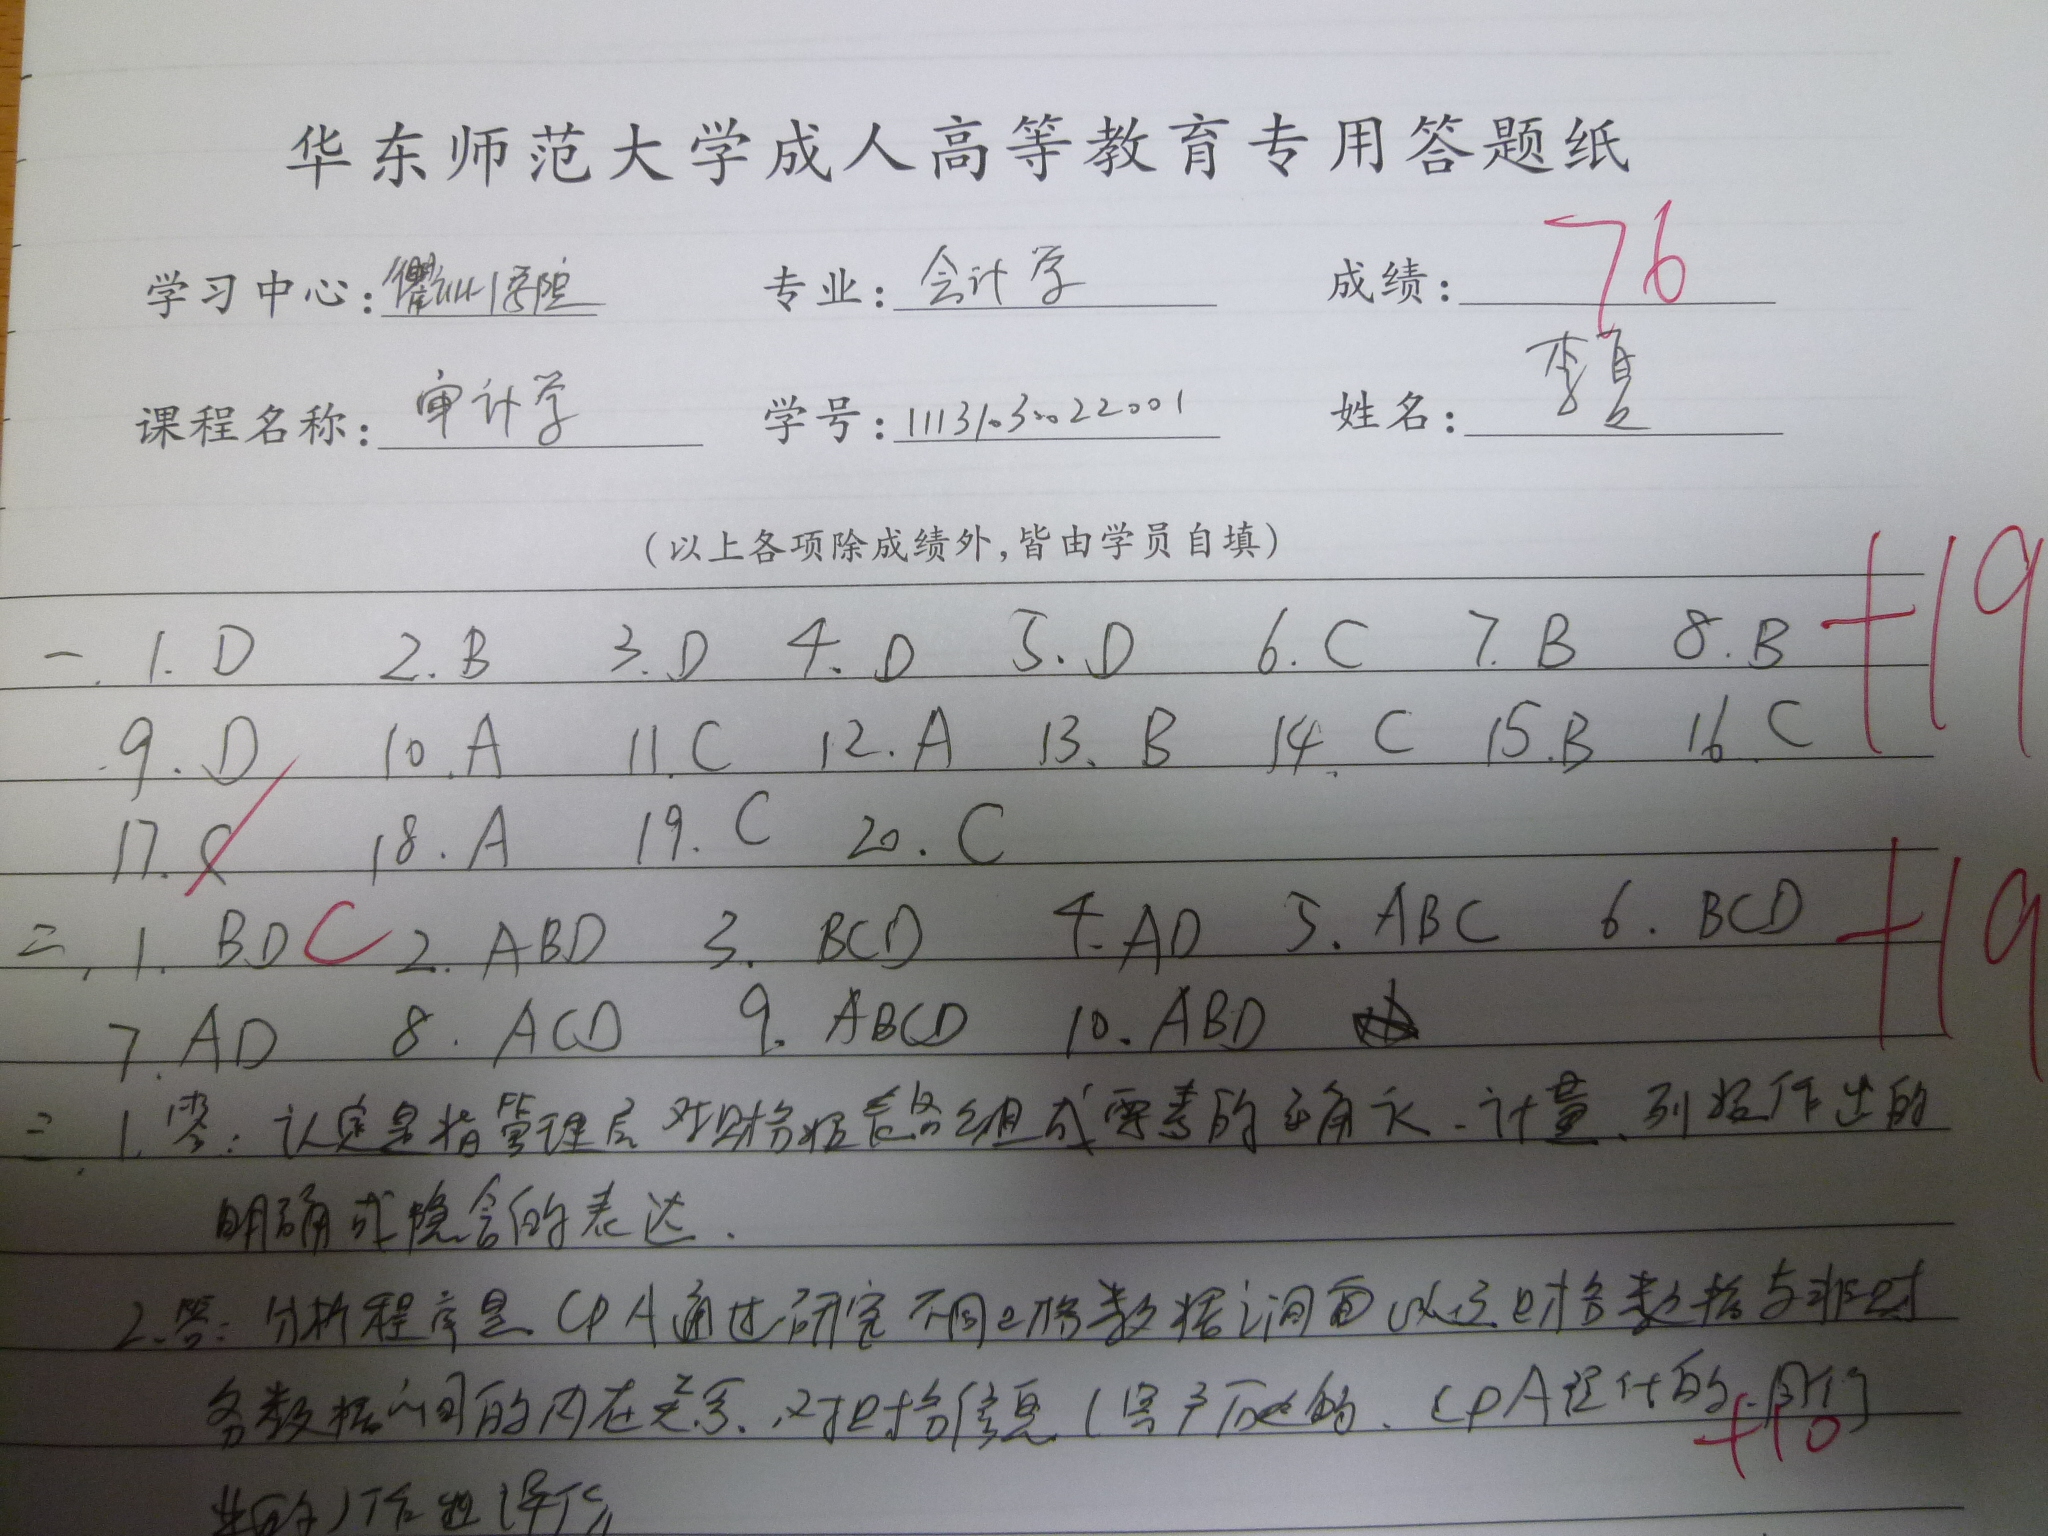 华东师范大学成人高等教育专用答题纸
学习中心: 衢州学院 专业: 会计学 成绩: 76
课程名称: 审计学 学号: 姓名: 李夏
(以上各项除成绩外,皆由学员自填)
一. 1. D 2. B 3. D 4. D 5. D 6. C 7. B 8. B +19
9. D 10. A 11. C 12. A 13. B 14. C 15. B 16. C
17. C 18. A 19. C 20. C
二. 1. BDC 2. ABD 3. BCD 4. AD 5. ABC 6. BCD +19
7. AD 8. ACD 9. ABCD 10. ABD
三. 1. 答: 认定是指管理层对财务报表各组成要素的确认、计量、列报作出的
明确或隐含的表达.
2. 答: 分析程序是CPA通过研究不同财务数据之间以及财务数据与非财
务数据之间的内在关系、对财务信息(客户历史的、CPA估计的、同行 +10
业的)作出评价